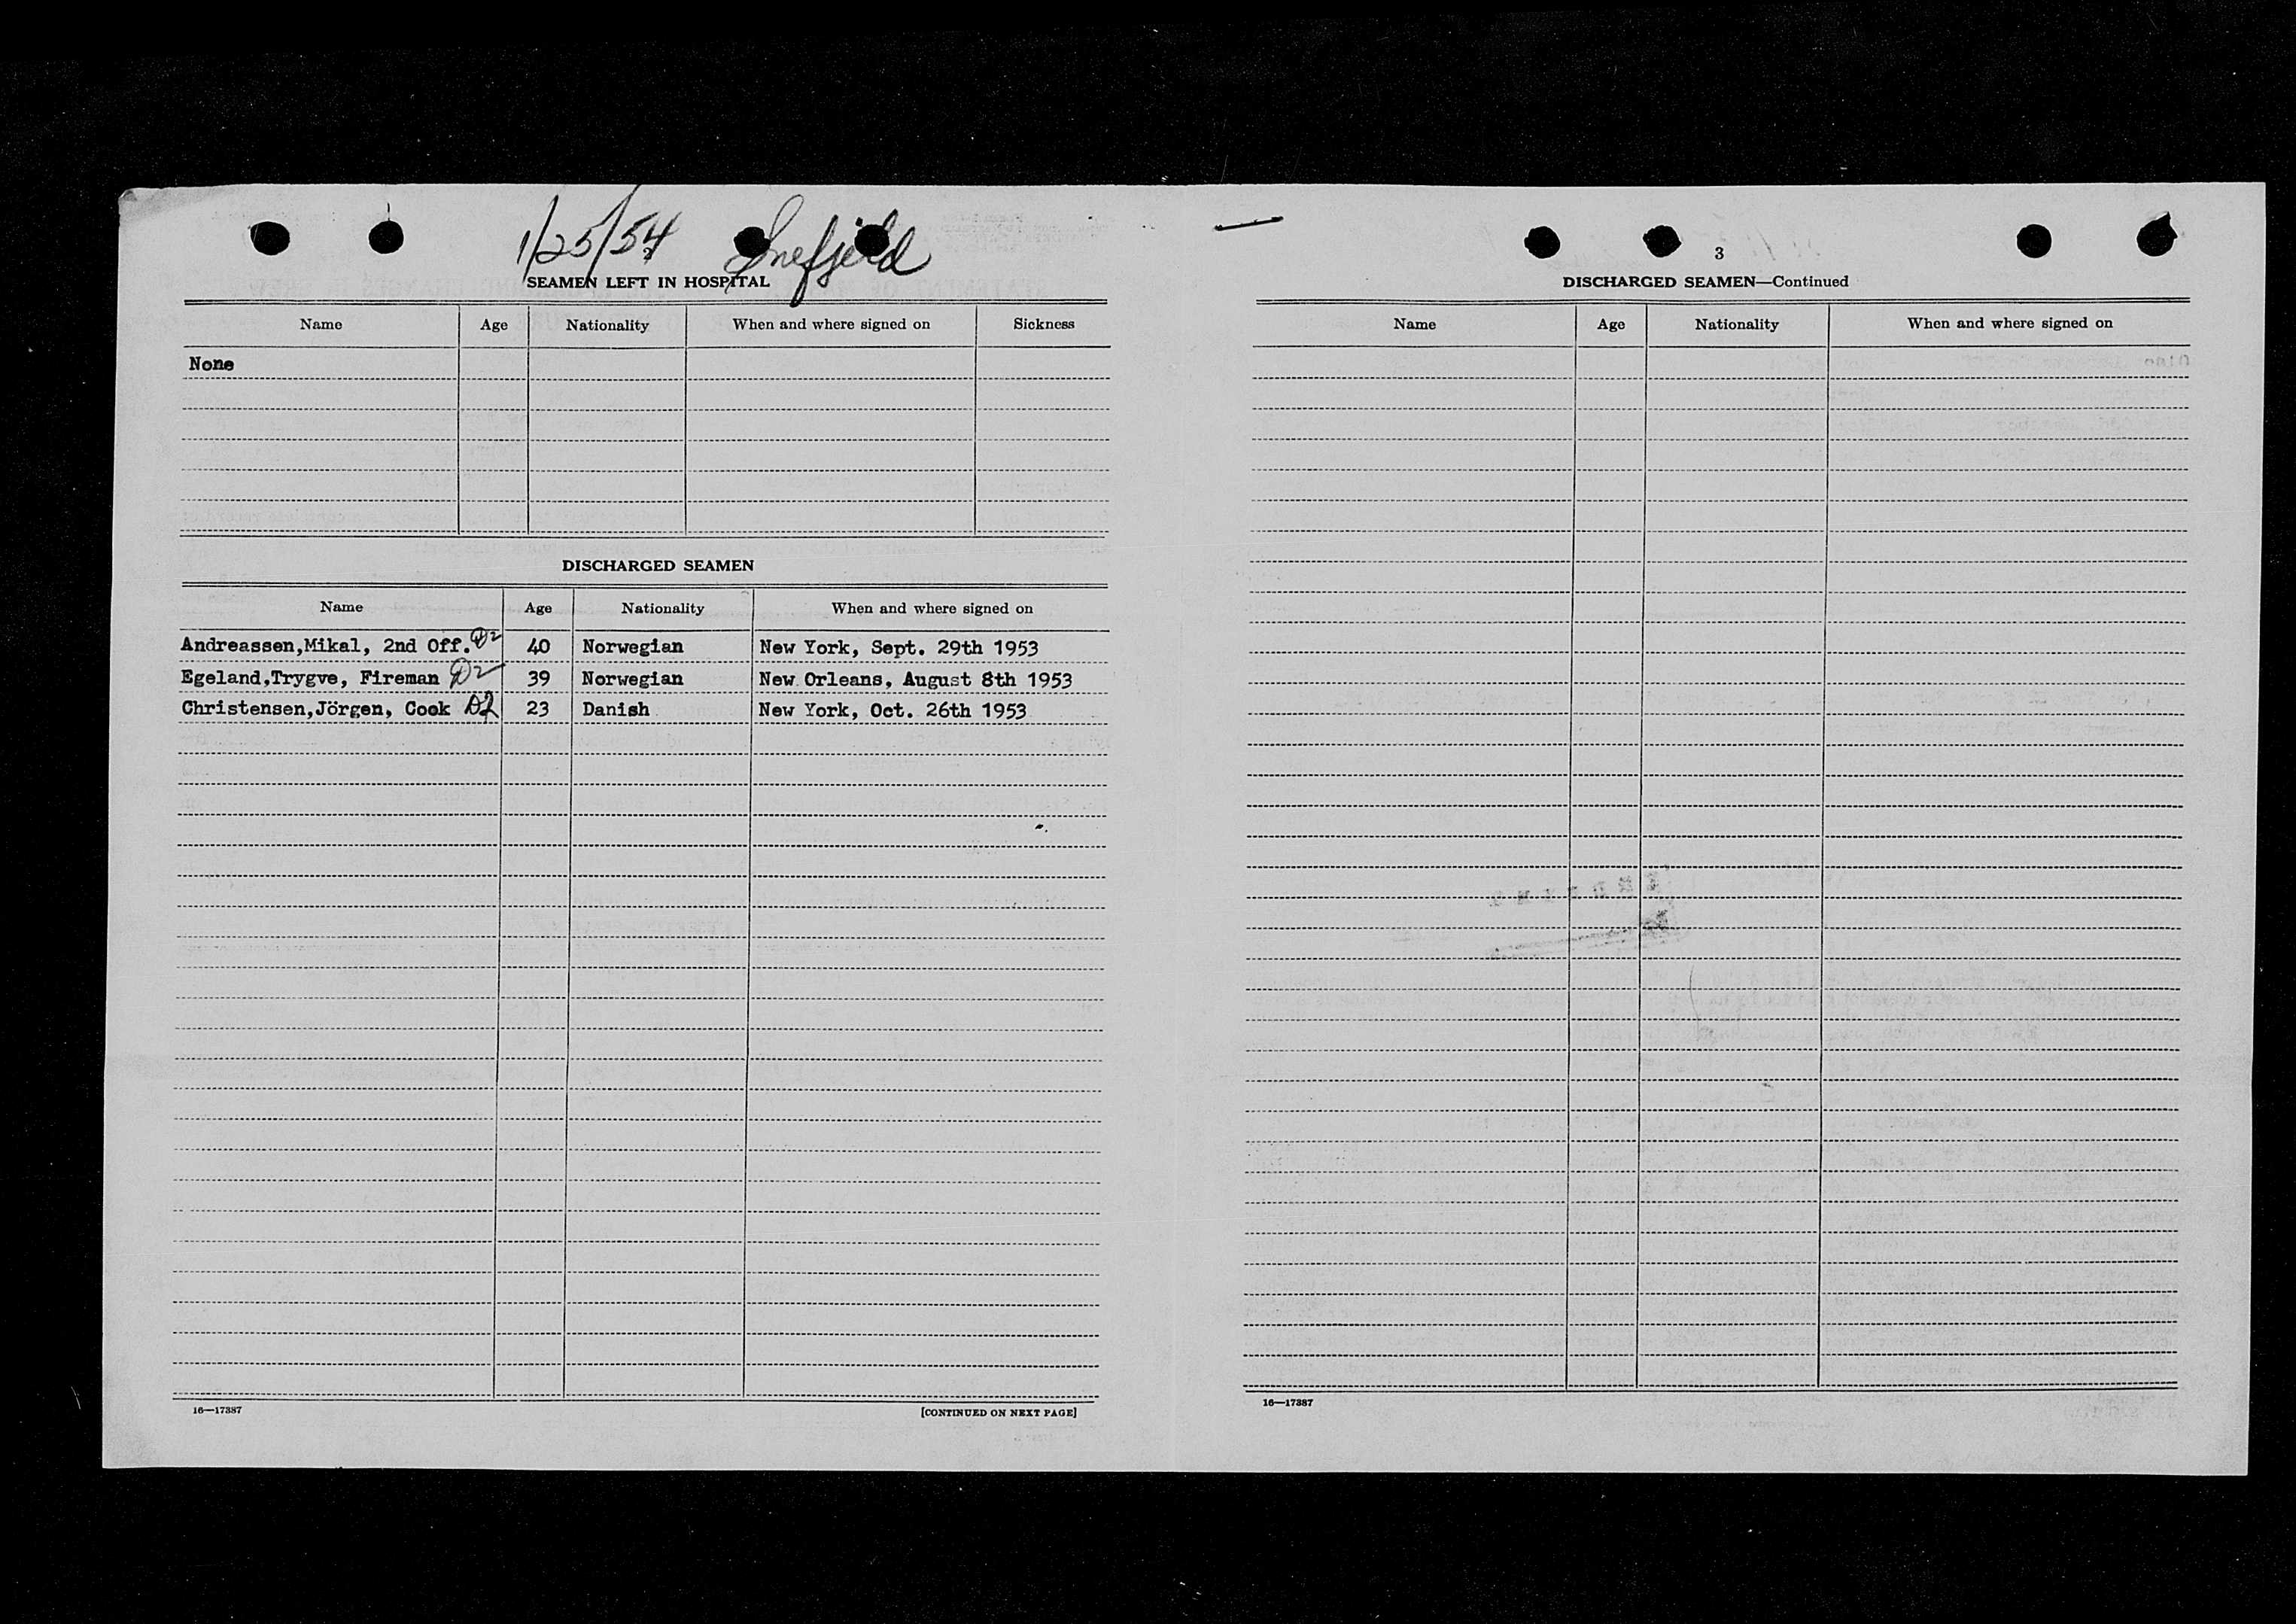 1/25/54 Snefjeld
SEAMEN LEFT IN HOSPITAL
Name Age Nationality When and where signed on Sickness
None
DISCHARGED SEAMEN
Name Age Nationality When and where signed on
Andreassen,Mikal, 2nd Off. D2 40 Norwegian New York, Sept. 29th 1953
Egeland,Trygve, Fireman D2 39 Norwegian New Orleans, August 8th 1953
Christensen,Jörgen, Cook D2 23 Danish New York, Oct. 26th 1953
16—17387 [CONTINUED ON NEXT PAGE]
3
DISCHARGED SEAMEN—Continued
Name Age Nationality When and where signed on
16—17387